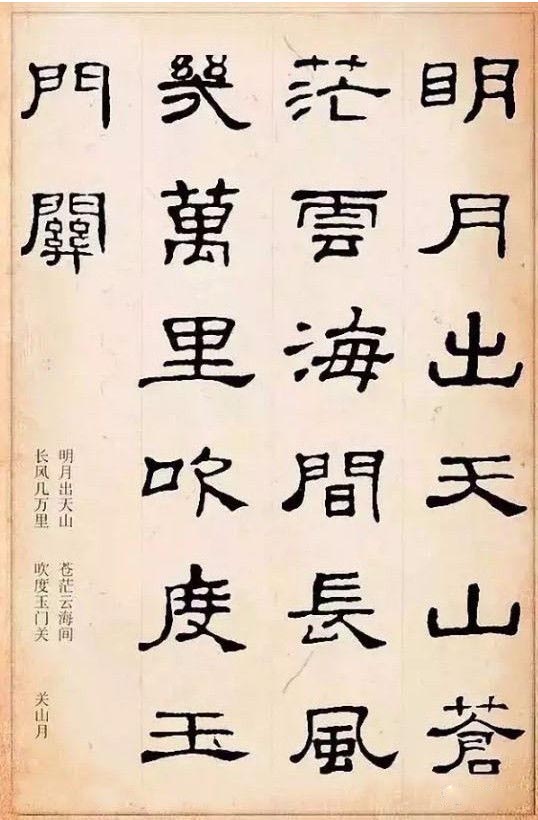 明月出天山蒼
茫雲海間長風
幾萬里吹度玉
門關
明月出天山 苍茫云海间
长风几万里 吹度玉门关 关山月